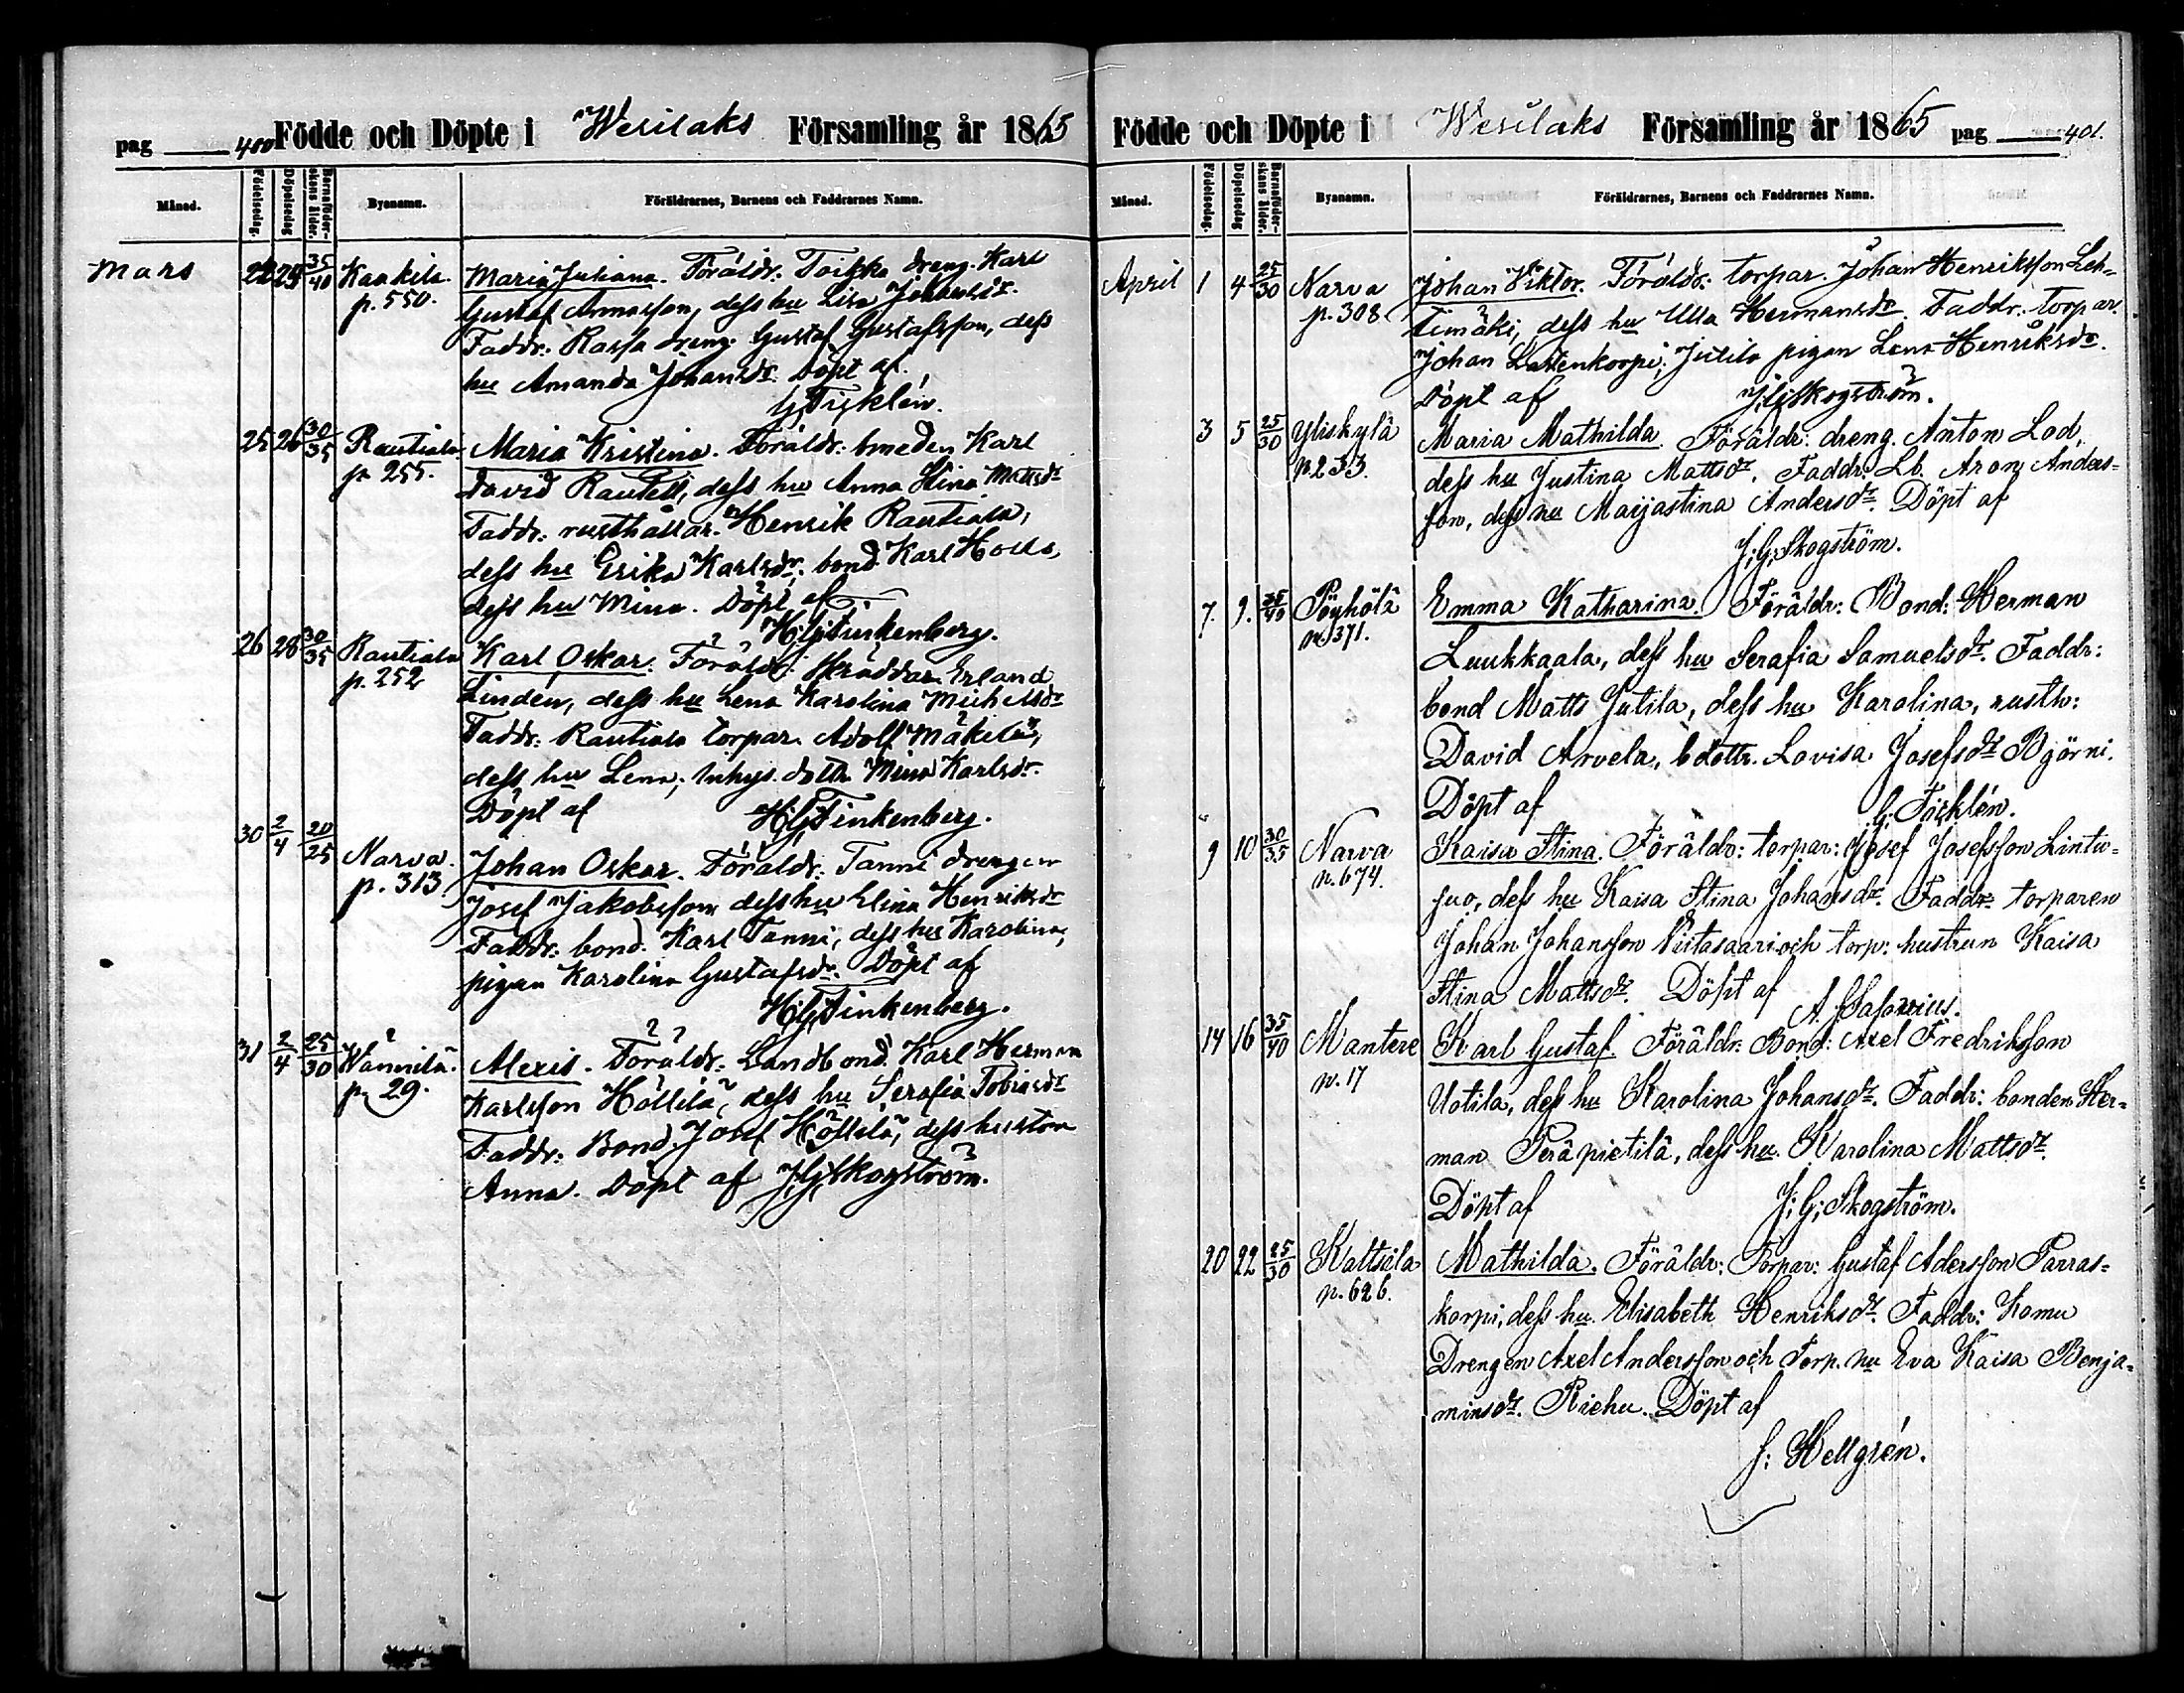 pag 400 Födde och Döpte i Wesilaks Församling år 1865
Månad. Födelsedag. Döpelsedag Barnaföderskans ålder. Byanamn. Föräldrarnes, Barnens och Faddrarnes Namn.
Mars 25 35/40 Kaakila Maria Juliana. Föräldr. Toikka dreng. Karl
p. 550. Gustaf Armasson, dess hu Lisa Johansdr.
Faddr. Rassa dreng. Gustaf Gustafsson, dess
hu Amanda Johansdr. Döpt af
G. Ticklén.
25 26 30/35 Rautiala Maria Kristina. Föräldr: bmeden Karl
p. 255. David Rautell, dess hu Anna Stina Mattsdr
Faddr. rusthållar. Henrik Rautiala,
dess hu Erika Karlsdr; bond. Karl Hollo,
dess hu Mina. Döpt af
H. G. Finkenberg.
26 28 30/35 Rautiala Karl Oskar. Föräldr: Skräddar. Erland
p. 252 Lindén, dess hu Lena Karolina Michelsdr
Faddr. Rautiala torpar. Adolf Mäkilä,
dess hu Lena; Inhys. dottr Mina Karlsdr.
Döpt af H. G. Finkenberg.
30 2/4 20/25 Narva. Johan Oskar. Föräldr. Tanni drengen
p. 313 Josef Jakobsson dess hu Elina Henriksdr
Faddr. bond. Karl Tanni, dess hu Karolina,
pigan Karolina Gustafsdr. Döpt af
H. G. Finkenberg.
31 2/4 25/30 Wännilä. Alexis. Föräldr. Landbond. Karl Herman
p. 29. Karlsson Höllilä, dess hu Serafia Tobiasdr
Faddr: Bond. Josef Höllilä, dess hustru
Anna. Döpt af J. G. Skogström.
Födde och Döpte i Wesilaks Församling år 1865 pag 401.
Månad. Födelsedag. Döpelsedag Barnaföderskans ålder. Byanamn. Föräldrarnes, Barnens och Faddrarnes Namn.
April 1 4 25/30 Narva Johan Viktor. Föräldr: torpar. Johan Henriksson Leh=
p. 308. timäki, dess hu Ulla Hermansdr. Faddr. torpar.
Johan Lattenkorpi; Jutila pigan Lena Henriksdr.
Döpt af J. G. Skogström.
3 5 25/30 Yliskylä Maria Mathilda. Föräldr: dreng. Anton Lod,
p. 233. dess hu Justina Mattsdr. Faddr: Lb. Aron Anders=
son, dess hu Maijastina Andersdr. Döpt af
J. G. Skogström.
7. 9. 35/40 Pöyhölä Emma Katharina. Föräldr: Bond: Herman
p. 371. Luukkaala, dess hu Serafia Samuelsdr. Faddr:
bond Matts Jutila, dess hu Karolina, rusth:
David Arvela, bdottr. Lovisa Josefsdr Björni.
Döpt af G. Ticklén.
9 10 30/35 Narva Kaisa Stina. Föräldr: torpar: Josef Josefsson Lintu=
p. 674. suo, dess hu Kaisa Stina Johansdr. Faddr: torparen
Johan Johansson Viitasaari och torp: hustrun Kaisa
Stina Mattsdr. Döpt af
14 16 35/40 Mantere Karl Gustaf. Föräldr: Bond: Axel Fredriksson
p. 17 Uotila, dess hu Karolina Johansdr. Faddr: bonden Her=
man Peräpietilä, dess hu Karolina Mattsdr.
Döpt af J. G. Skogström.
20 22 25/30 Kaltsila Mathilda. Föräldr: Torpar: Gustaf Adersson Parras=
p. 626. korpi, dess hu. Elisabeth Henriksdr. Faddr: Komu
Drengen Axel Andersson och Torp. hu Eva Kaisa Benja=
minsdr. Riehu. Döpt af
J. Hellgrén.